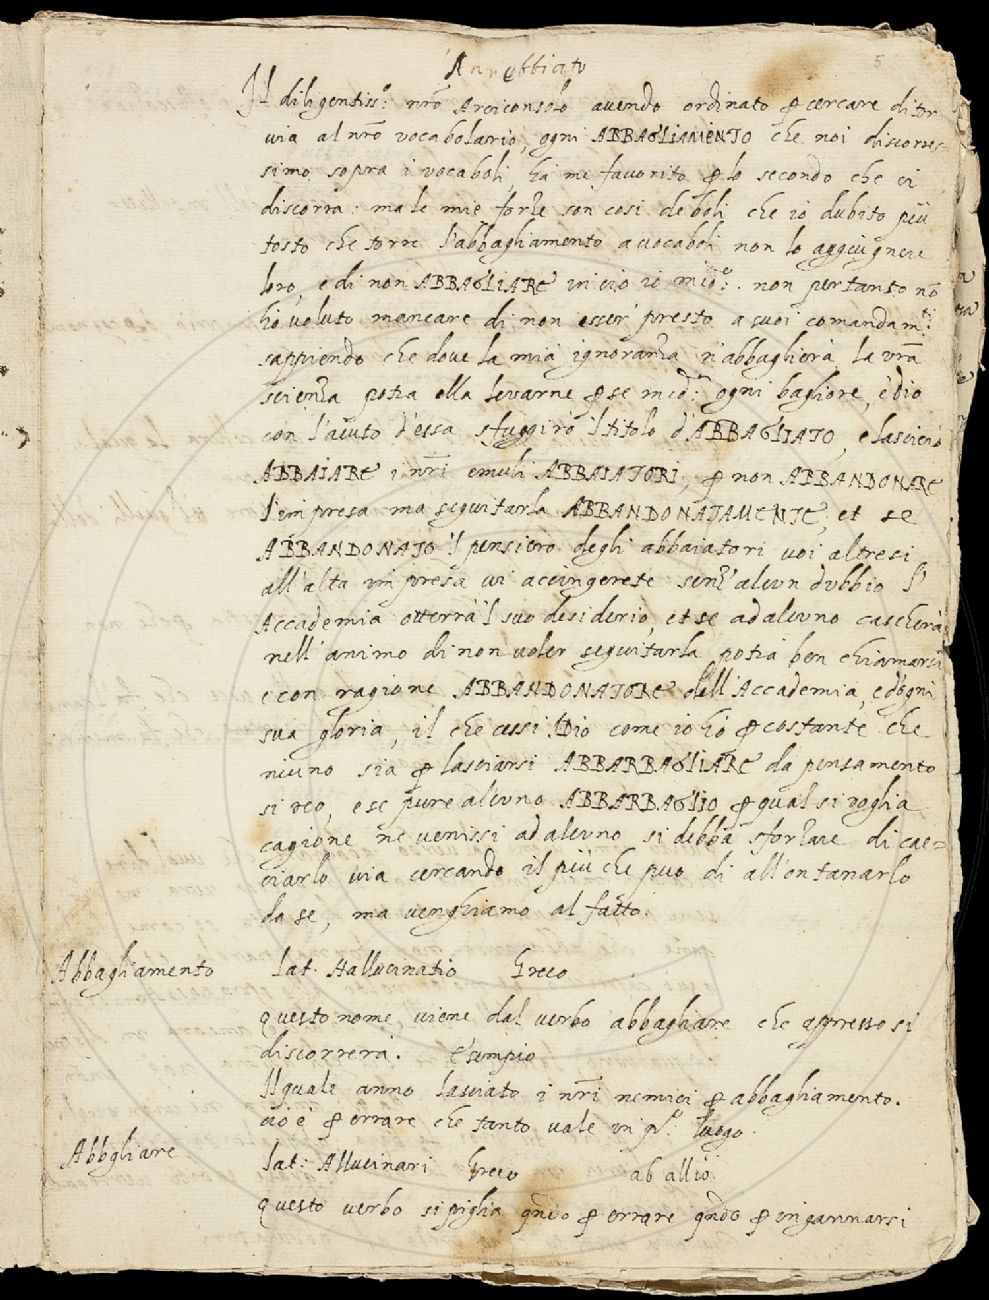 5
Il diligentiss:º nrõ Arciconsolo avendo ordinato p cercare di tor
via al nrõ vocabolario, ogni ABBAGLIAMENTO che noi discorres-
simo sopra i vocaboli, ha me favorito p lo secondo che ci
discorra: ma le mie forze son così deboli che io dubito più
tosto che torre l'abbagliamento a vocaboli non lo aggiugnere
loro, e di non ABBAGLIARE in ciò io med:º. non pertanto nõ
hò voluto mancare di non esser presto a suoi comandam:ti
sappiendo che dove la mia ignoranza n'abbaglierà la vrã
scienza potrà ella levarne p se med:ª ogni bagliore, ed io
con l'aiuto d'essa sfuggirò 'l titolo d'ABBAGLIATO, e lascierò
ABBAIARE i nrĩ emuli ABBAIATORI, p non ABBANDONARE
l'impresa ma seguitarla ABBANDONATAMENTE, et se
ABBANDONATO 'l pensiero degli abbaiatori voi altresi
all'alta impresa vi accingerete senz'alcun dubbio l'
Accademia otterrà 'l suo desiderio, et se ad alcuno cascherà
nell'animo di non voler seguitarla potrà ben chiamarsi
e con ragione ABBANDONATORE dell'Accademia, e d'ogni
sua gloria, il che cessi Dio come io hò p costante che
neuno sia p lasciarsi ABBARBAGLIARE da pensamento
si reo, e se pure alcuno ABBARBAGLIO p qual si voglia
cagione ne venissi ad alcuno si debba sforzare di cac=
ciarlo via cercando il più che può di allontanarlo
da se, ma venghiamo al fatto.
Abbagliamento lat. Hallucinatio Greco
questo nome, viene dal verbo abbagliare che appresso si
discorrerà. Esempio
Il quale anno lasciato i nrĩ nemici p abbagliamento.
ciò è p errare che tanto vale in qº. luogo.
Abbgliare lat: Allucinari Greco ab allio.
questo verbo si piglia qñdo p errare qñdo p ingannarsi